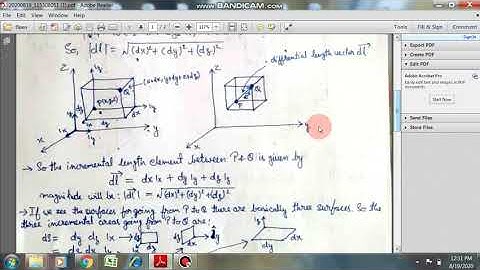 20200819_115508051 (1).pdf - Adobe Reader
www.BANDICAM.com
File Edit View Window Help
117%
Tools Fill & Sign Comment
So, |dl| = √(dx)²+(dy)²+(dz)²
differential length vector dl
Z
Z
(x+dx, y+dy, z+dz)
Q
P(x,y,z)
Q
P
dx
y
x
x
→ So the incremental length element between P & Q is given by
dl = dx 1x + dy 1y + dz 1z
magnitude will be: |dl| = √(dx)²+(dy)²+(dz)²
→ If we see the surfaces for going from P to Q there are basically three surfaces. So the
three incremental areas going from P to Q are:
ds = dy dz 1x
dx
dy
Export PDF
Create PDF
Edit PDF
Adobe Acrobat Pro
Easily edit text and images in PDF documents
Start Now
Send Files
Store Files
12:31 PM
8/19/2020